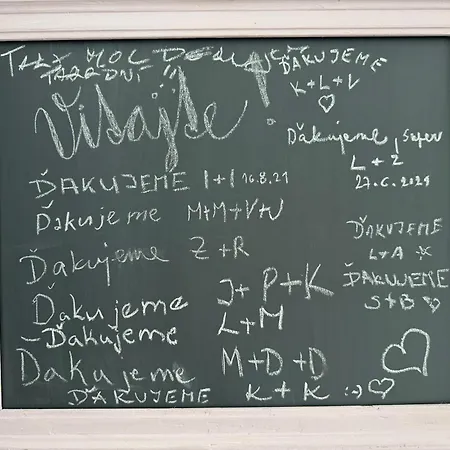 MOC
ĎAKUJEME
K+L+V
Vitajte
Ďakujeme, Super
L+Z
27.6.2021
ĎAKUJEME I+I 16.8.21
Ďakujeme M+M+V+V
ĎAKUJEME
L+A
Ďakujeme Z+R
ĎAKUJEME
S+B
J+P+K
Ďakujeme
L+M
Ďakujeme
Ďakujeme M+D+D
ĎAKUJEME K+K :-)